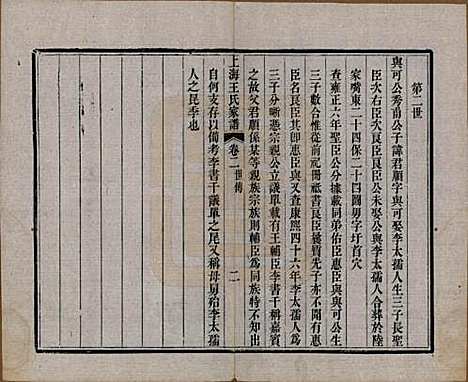 第二世
與可公秀甫公子諱君順字與可娶李太孺人生三子長聖
臣次右臣次良臣良臣公未娶公與李太孺人合葬於陸
家嘴東二十四保二十四圖男字圩首穴
查雍正六年聖臣公分據載同弟佑臣惠臣與與可公生
三子數合惟從前祀冊祇書良臣曩質先子亦不聞有惠
臣名良臣其卽惠臣與又查康熙四十六年李太孺人爲
三子分晰憑宗親公立議單載有王輔臣李書千稱嘉賓
之故父君順係某等親族宗族則輔臣爲同族特不知出
自何支存以備考李書千議單之尾又稱母舅殆李太孺
人之昆季也
上海王氏家譜
卷二 世傳
二